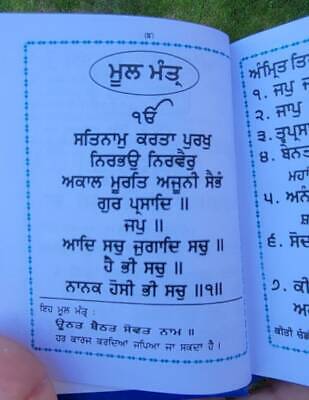 (੪)
ਮੂਲ ਮੰਤ੍ਰ
ੴ
ਸਤਿਨਾਮੁ ਕਰਤਾ ਪੁਰਖੁ
ਨਿਰਭਉ ਨਿਰਵੈਰੁ
ਅਕਾਲ ਮੂਰਤਿ ਅਜੂਨੀ ਸੈਭੰ
ਗੁਰ ਪ੍ਰਸਾਦਿ ॥
ਜਪੁ ॥
ਆਦਿ ਸਚੁ ਜੁਗਾਦਿ ਸਚੁ ॥
ਹੈ ਭੀ ਸਚੁ ॥
ਨਾਨਕ ਹੋਸੀ ਭੀ ਸਚੁ ॥੧॥
ਇਹ ਮੂਲ ਮੰਤ੍ਰ :
ਊਠਤ ਬੈਠਤ ਸੋਵਤ ਨਾਮ ॥
ਹਰ ਕਾਰਜ ਕਰਦਿਆਂ ਜਪਿਆ ਜਾ ਸਕਦਾ ਹੈ ।
ਅੰਮ੍ਰਿਤ
੧. ਜਪੁ
੨. ਜਾਪੁ
੩.
੪.
੫.
੬.
੭.
ਕੀਤੀ